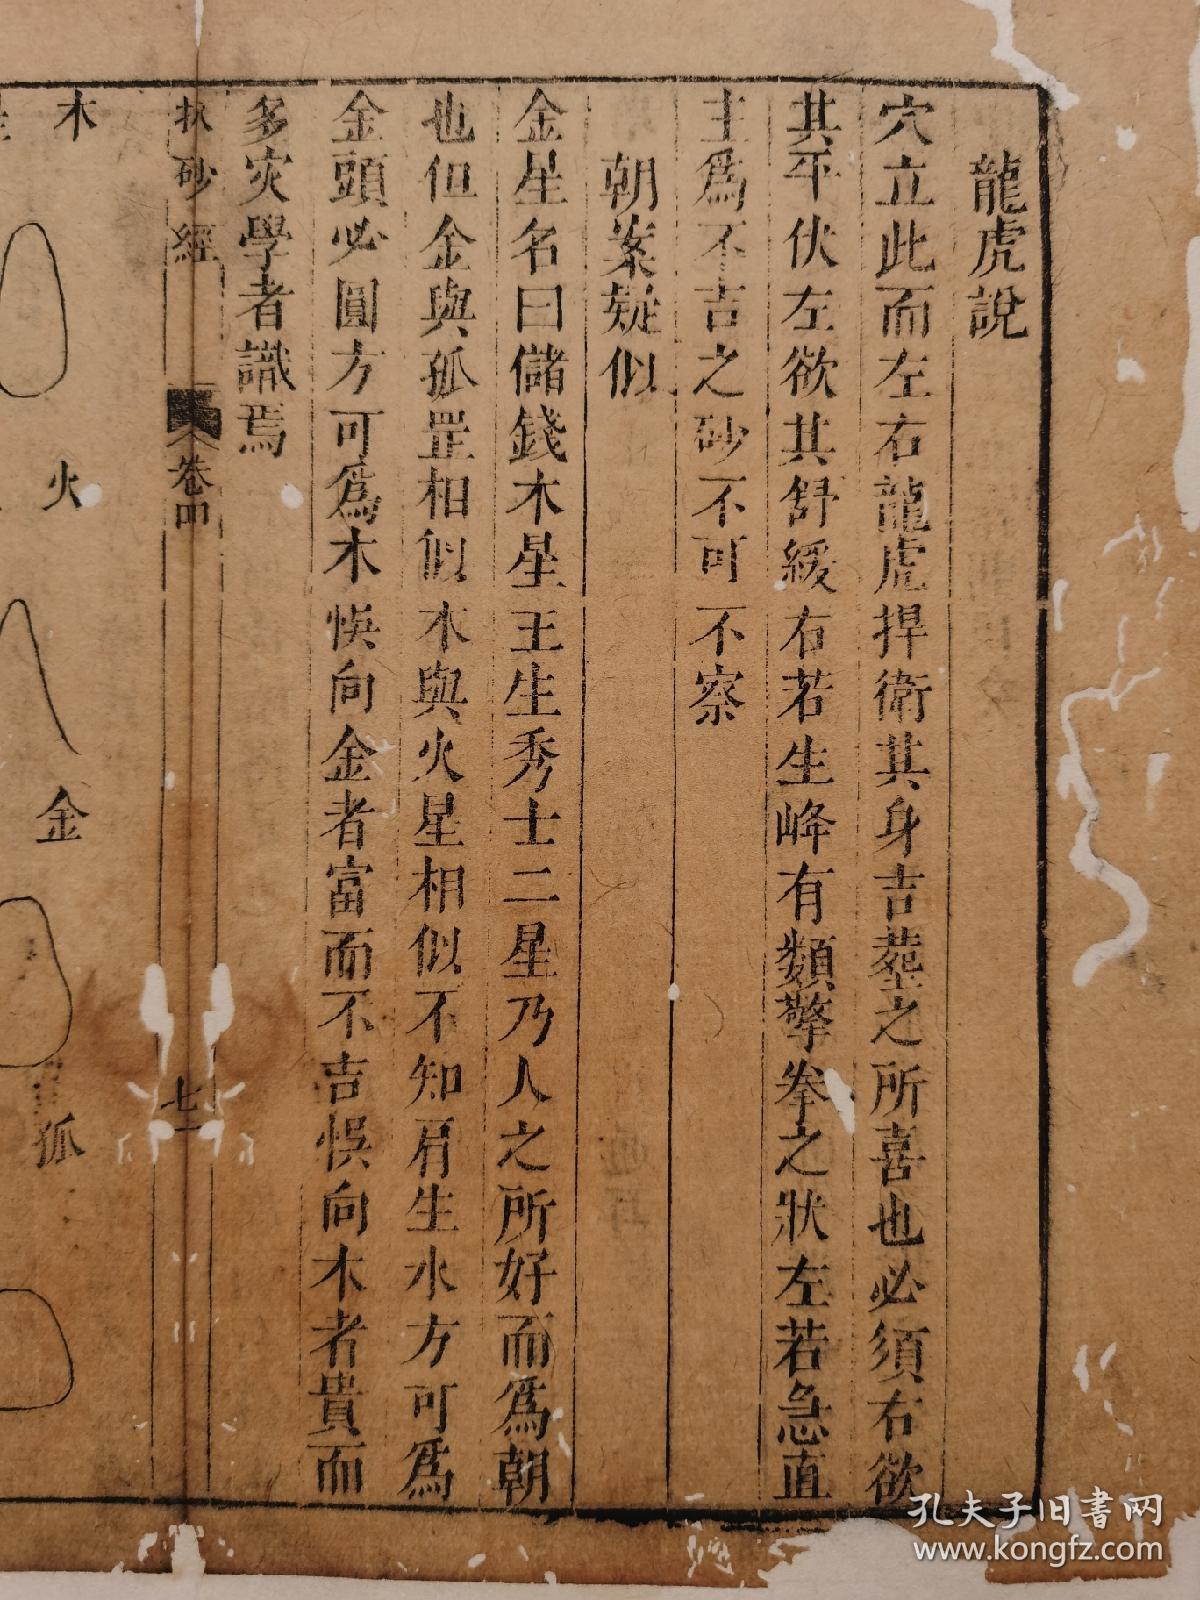 龍虎說
穴立此而左右龍虎捍衛其身吉塟之所喜也必須右欲
其平伏左欲其舒緩右若生峰有類擎拳之狀左若急直
主為不吉之砂不可不察
朝案疑似
金星名曰儲錢木星王生秀士二星乃人之所好而爲朝
也但金與孤罡相似木與火星相似不知肩生水方可爲
金頭必圓方可爲木悞向金者富而不吉悞向木者貴而
多灾學者識焉
砂經
卷四
七
木
火
金
孤
孔夫子旧书网
www.kongfz.com